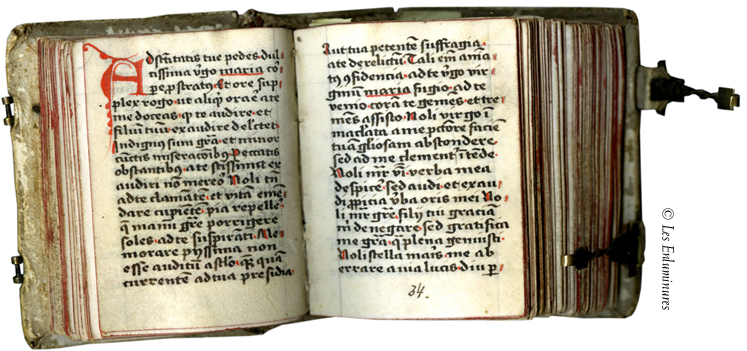 Ad sc̃titatis tue pedes dul
cissima v̾go maria co᷑
p̱e p̱strato et ore sup
plex rogo ut aliq̃ orac̃e a te
me doceas q̃ te audire et
filiũ tuũ exaudire delc̃tet
Indignus sum gr̃a et minor
cũctis miserac̃oib; Peccatis
obstantibus a te sc̃issima ex
audiri non mereo᷑ Noli tñ
ad te clamãtẽ et vitã emẽ
dare cupiẽtẽ pia repelle᷑
q̃ manũ gr̃e porrigere
soles ad te suspirãti Me
morare pijssima non
esse auditũ a sc̃lo q̃ȝ quã
currentem ad tua presidia
Aut tua petentẽ suffragia
a te derelictũ Tali em̃ aĩa
tꝰ ꝯfidencia ad te v̾go vir
ginũ maria fugio ad te
venio corã te gemẽs et tre
mẽs assisto Noli virgo ĩ
maclata a me pc̃tore faciẽ
tuã gl̃iosam abscondere
sed ad me clement᷑ ĩtẽde
Noli mr̃ v̾bi verba mea
despic̾e sed audi et exau
di ꝓpicia v̾ba oris mei No
li mr̃ gr̃e filij tui graciã
m̃ denegare sed gratifica
me gr̃a q̃ plena genuisti
Noli stella maris me ab
errare a via lucis diu p̱
34.
© Les Enluminures